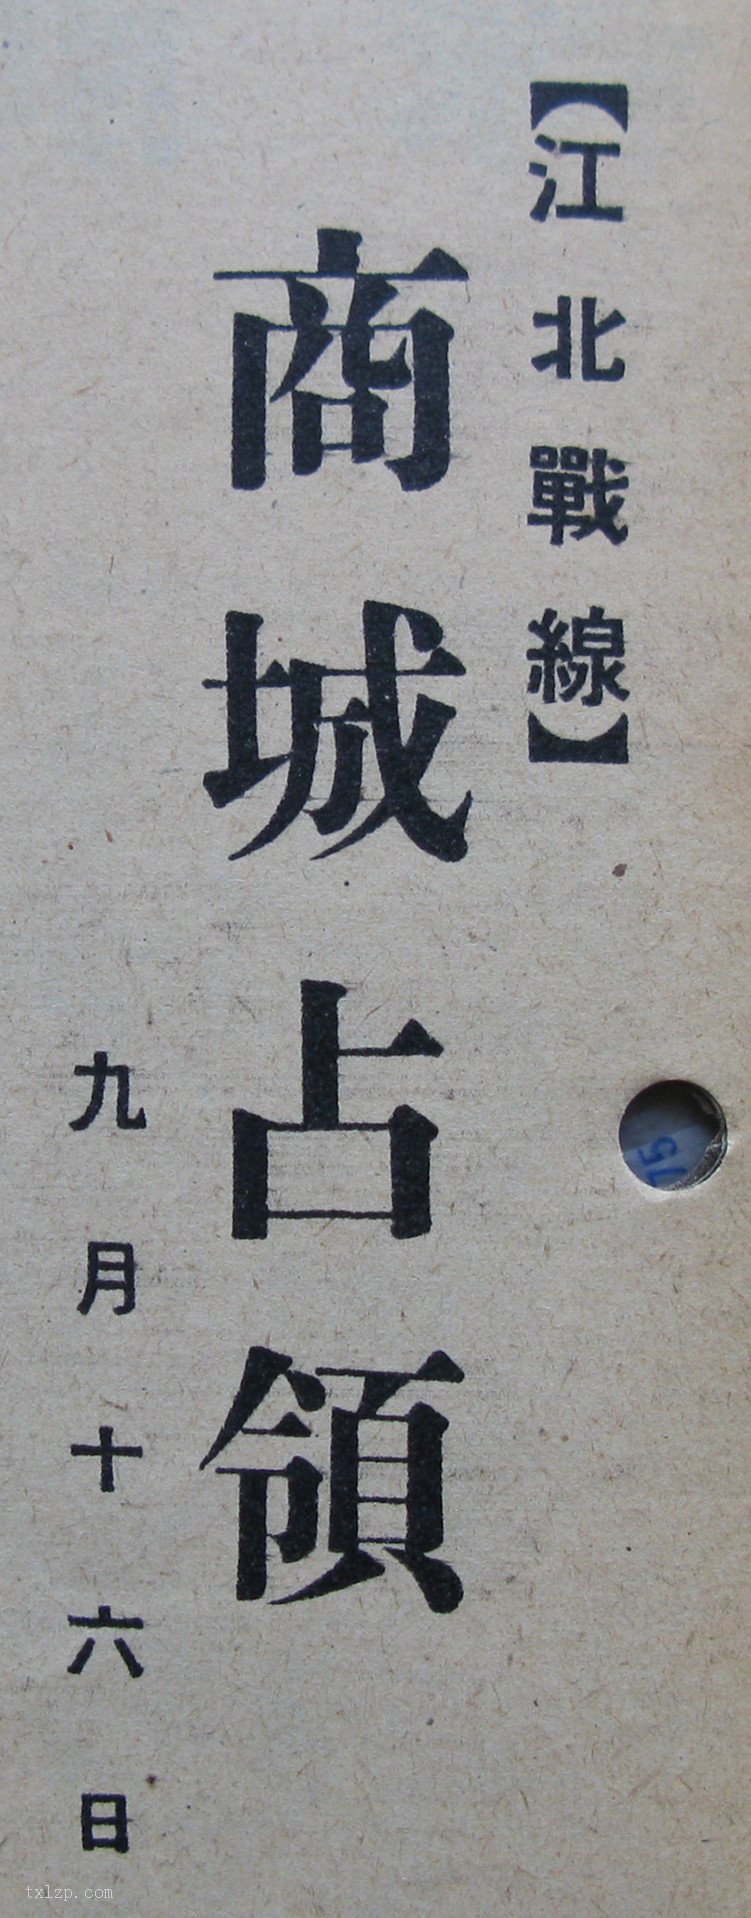 【江北戰線】
商城占領
九月十六日
75
txlzp.com